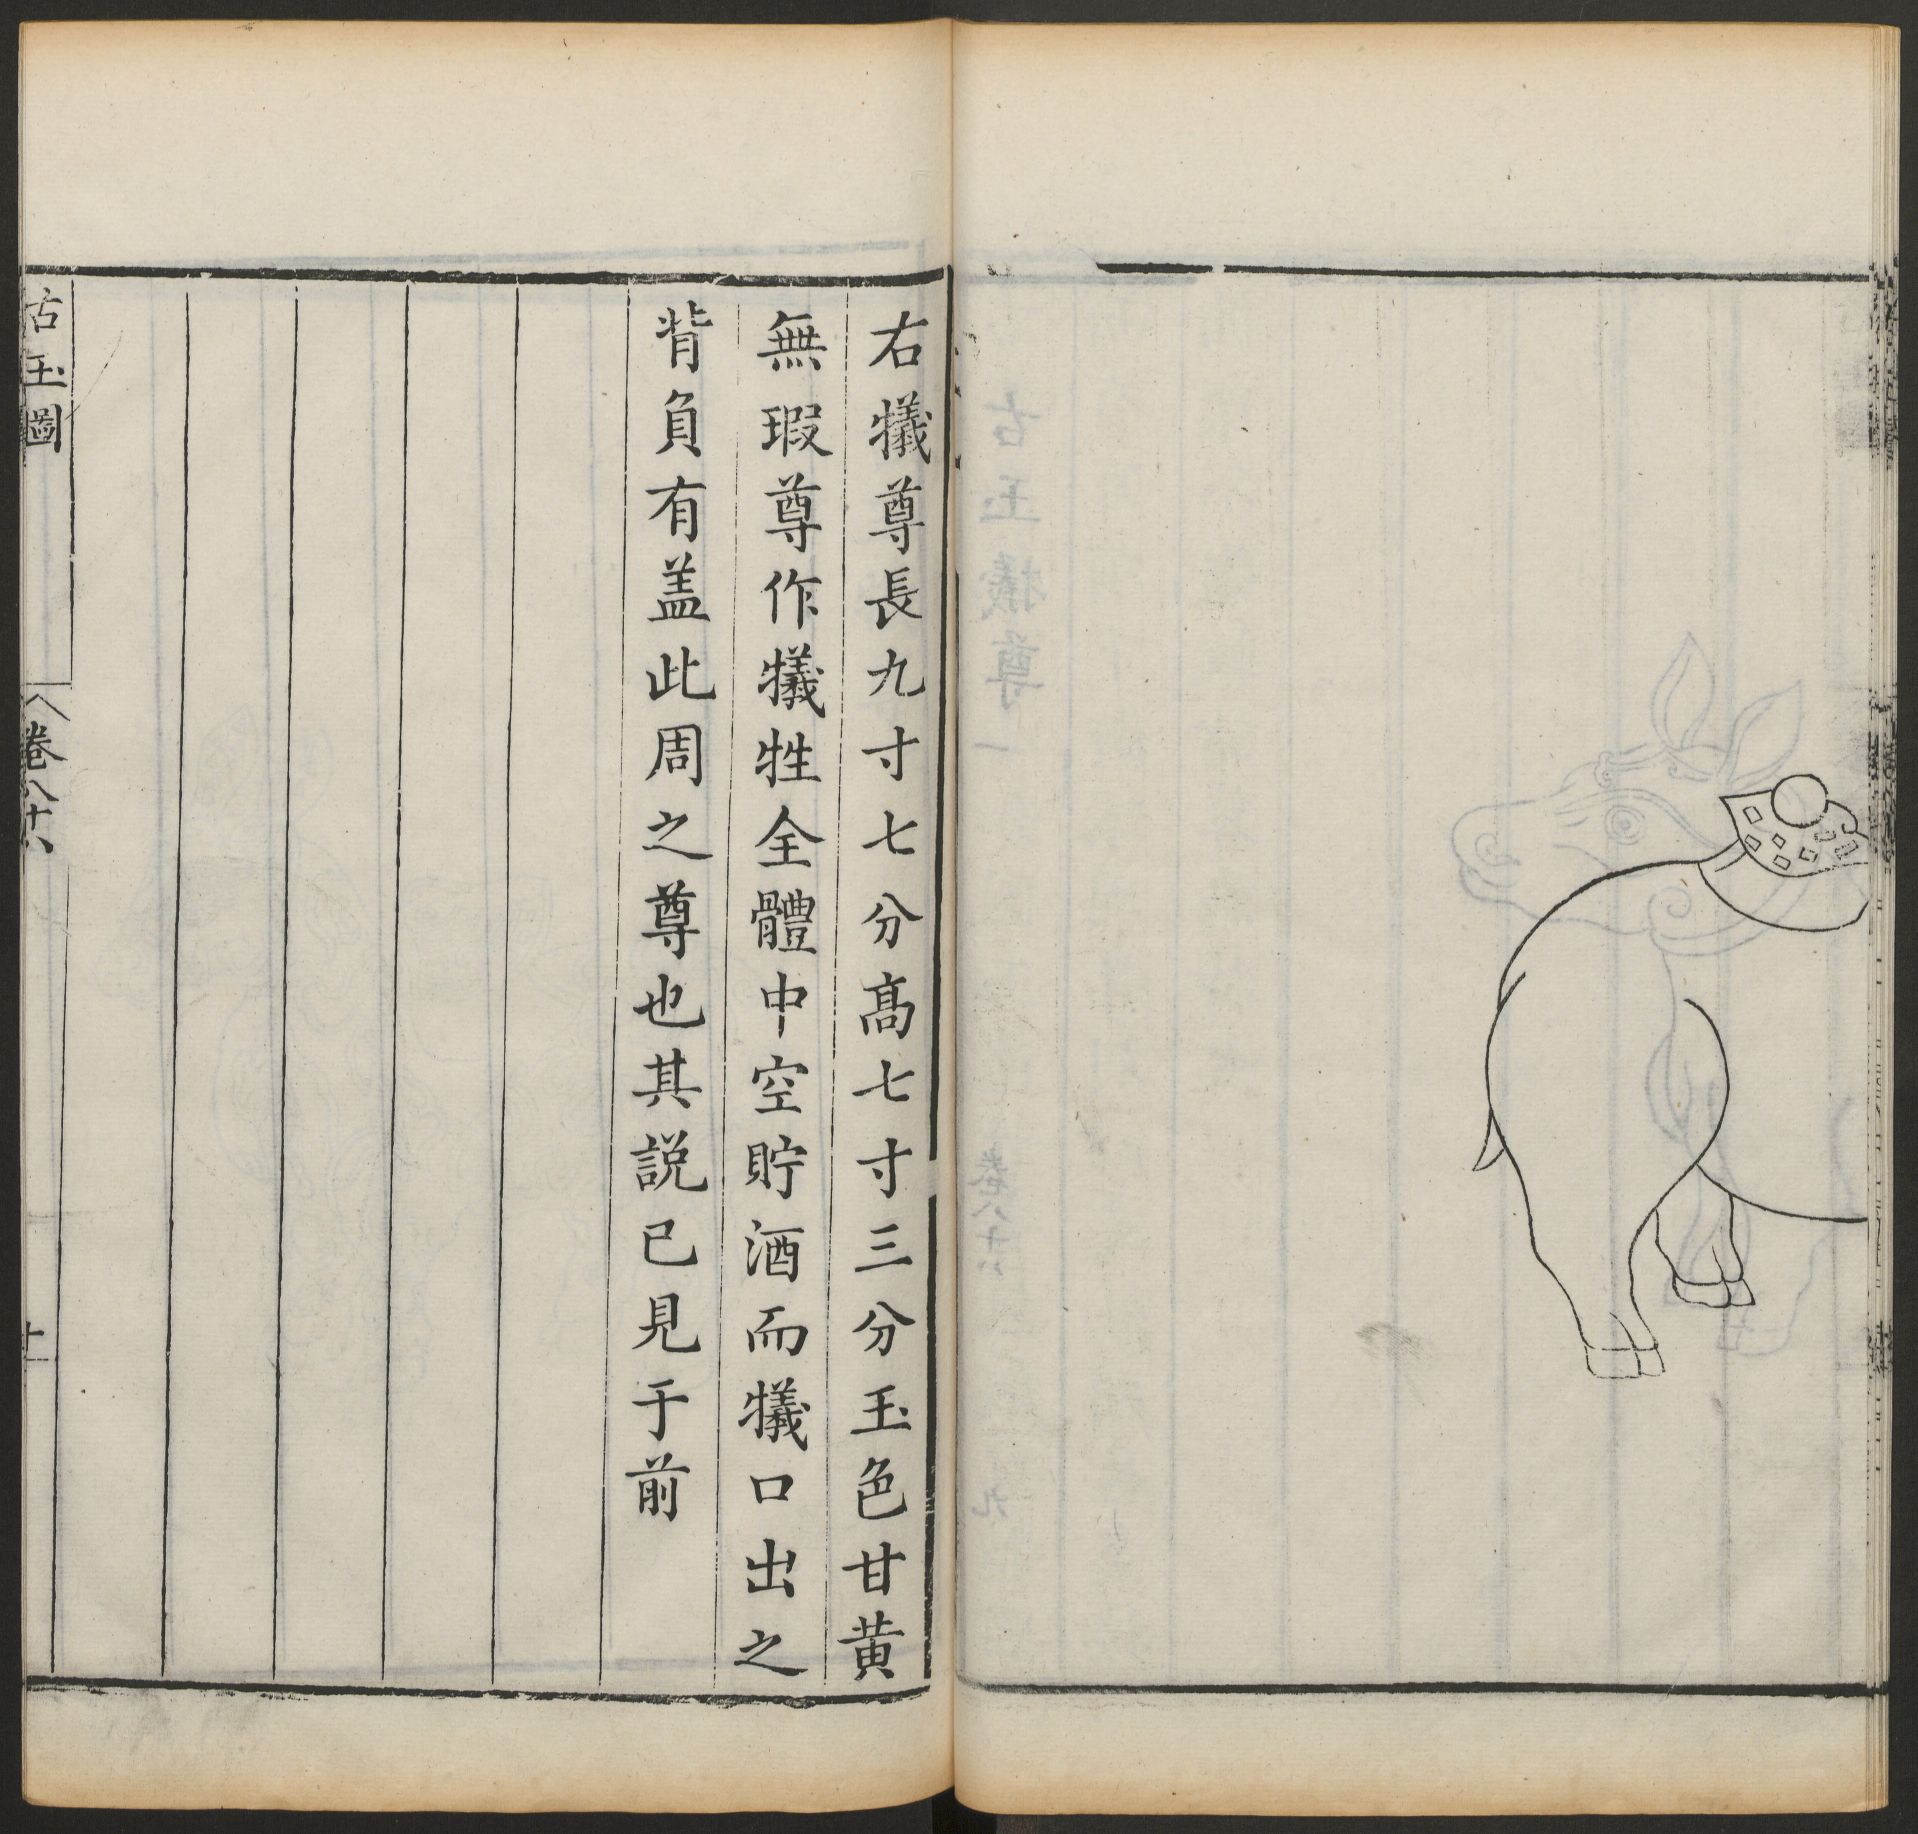 右犧尊長九寸七分髙七寸三分玉色甘黄
無瑕尊作犧牲全體中空貯酒而犧口出之
背負有盖此周之尊也其説已見于前
古玉圖
卷八十八
十